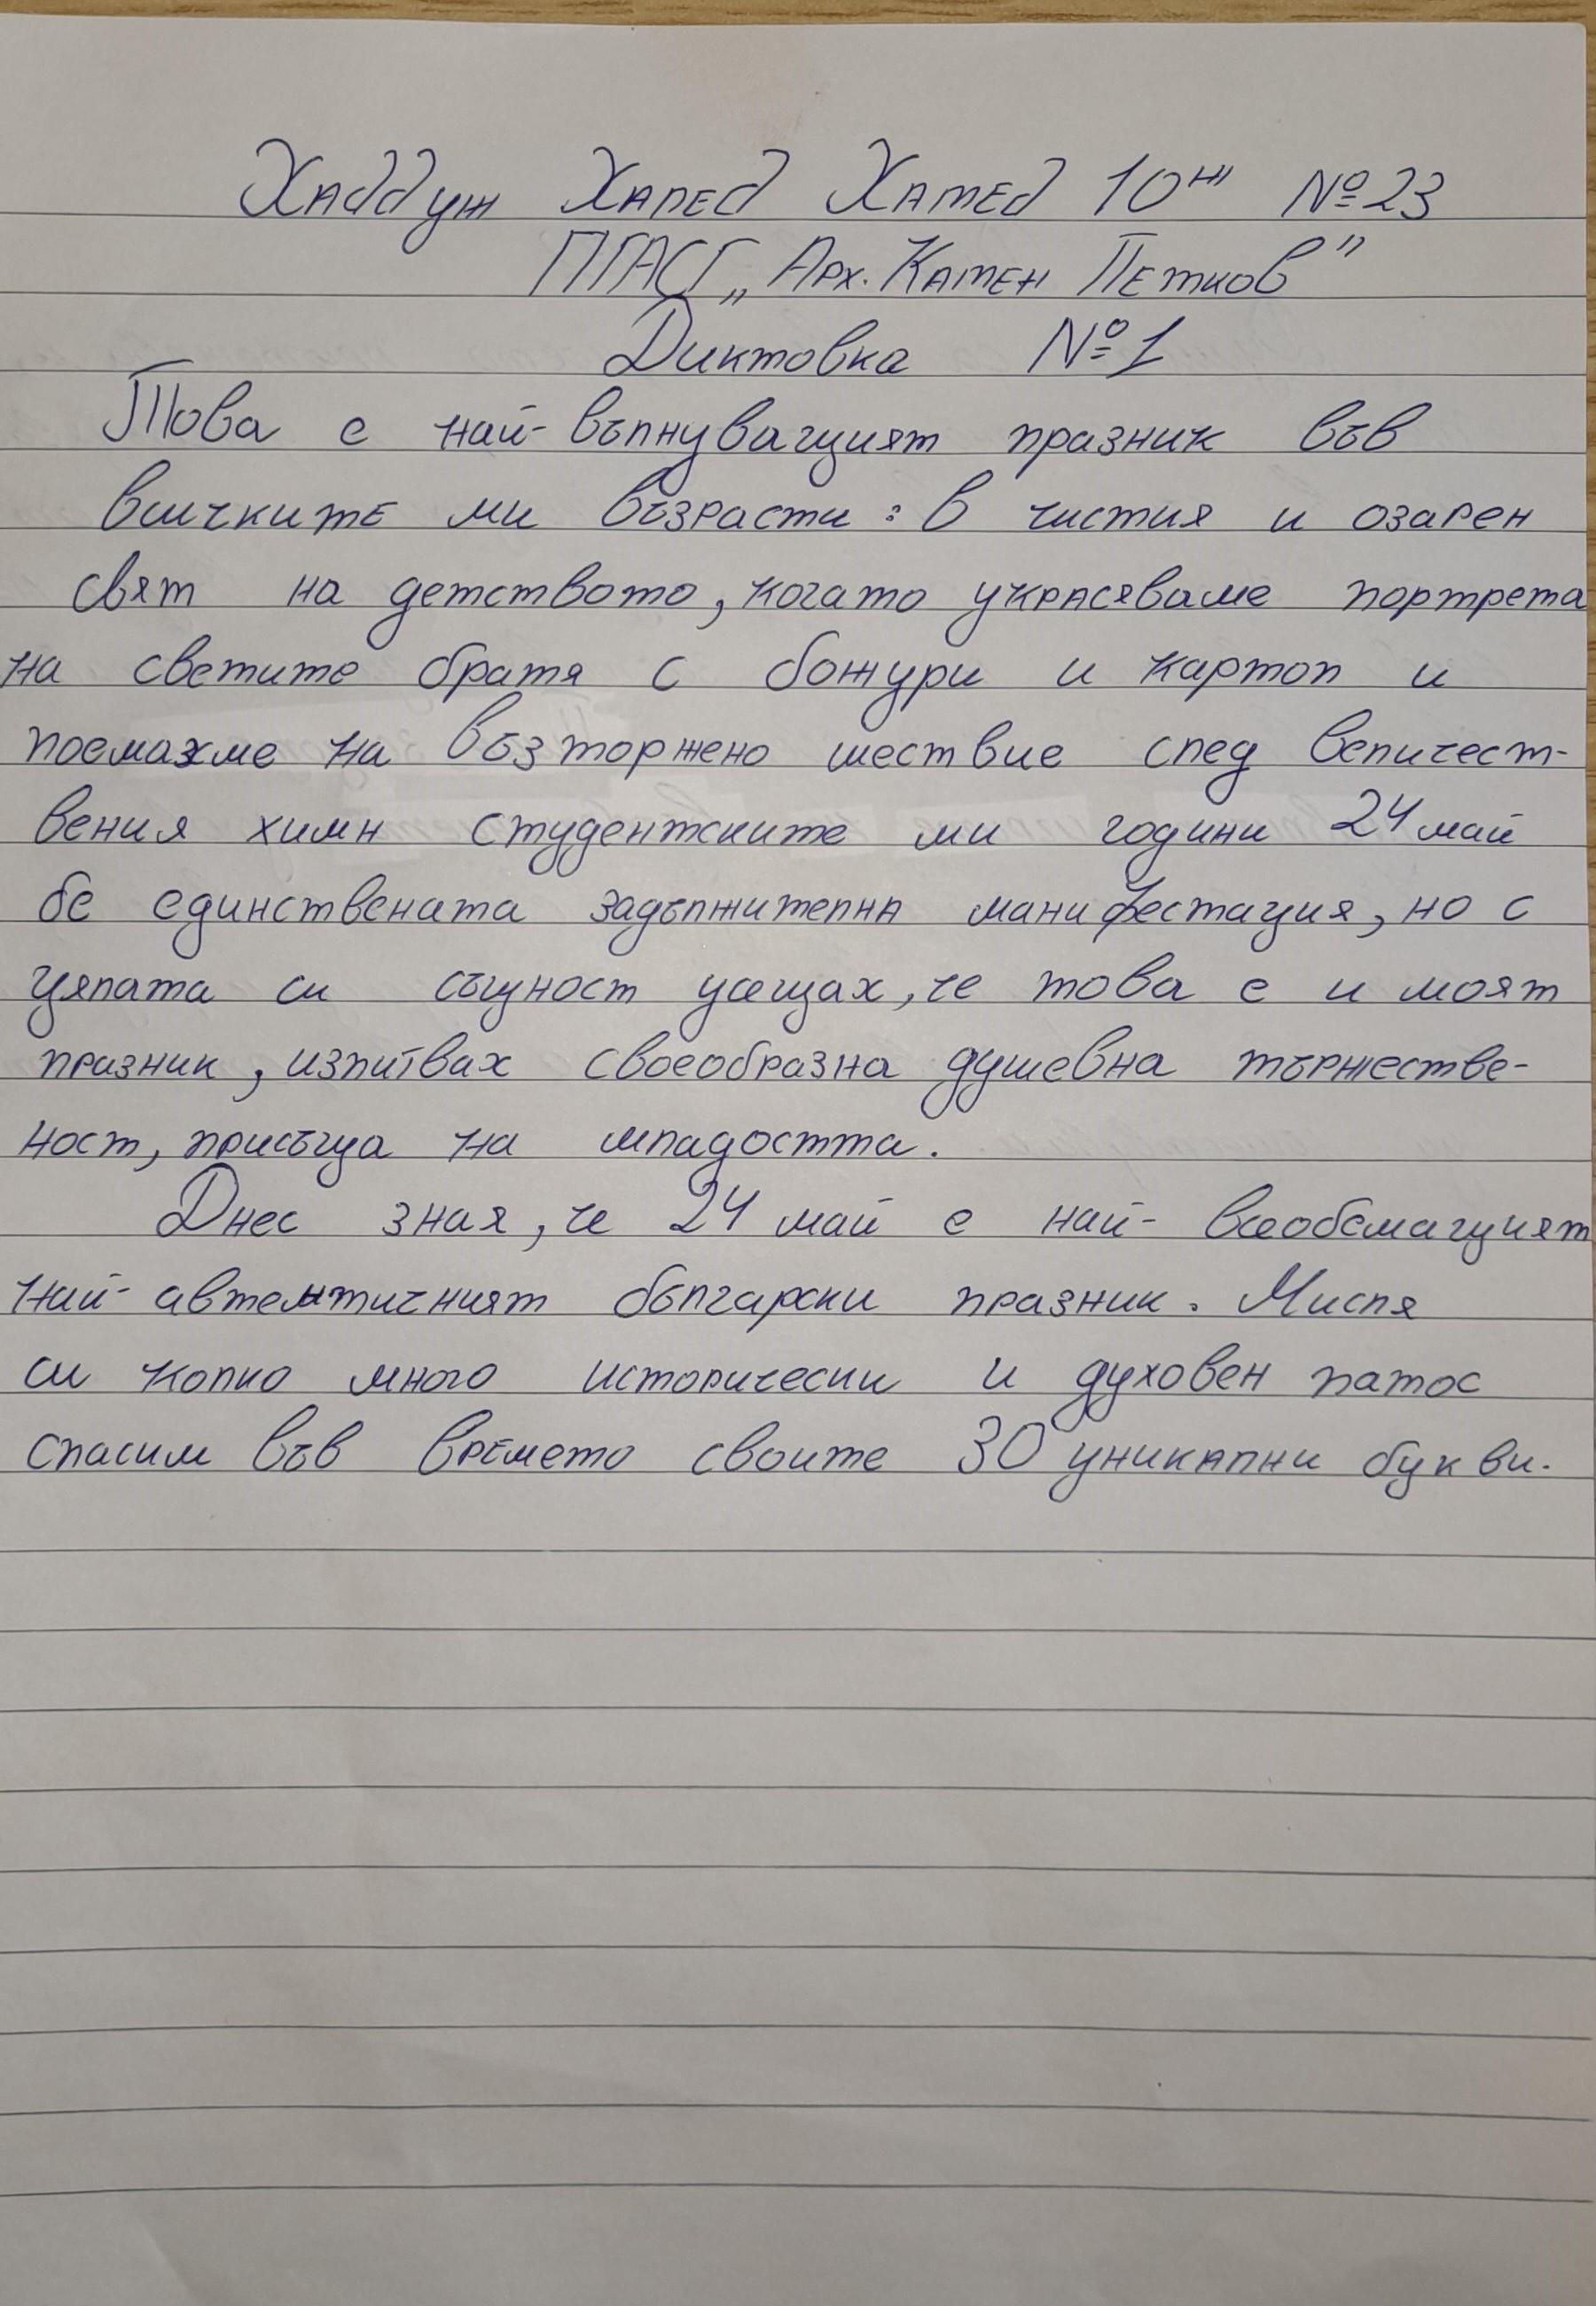 Хаддуж Халед Хамед 10ж №23
ПГАСГ „Арх. Камен Петков"
Диктовка №1
Това е най-вълнуващият празник във
всичките ми възрасти: в чистия и озарен
свят на детството, когато украсяваме портрета
на светите братя с божури и картоп и
поемахме на възторжено шествие след величест-
вения химн студентските ми години 24 май
бе единствената задължителна манифестация, но с
цялата си същност усещах, че това е и моят
празник, изпитвах своеобразна душевна тържестве-
ност, присъща на младостта.
Днес зная, че 24 май е най- всеобемащият
най- автентичният български празник. Мисля
си колко много исторически и духовен патос
спасим във времето своите 30 уникални букви.